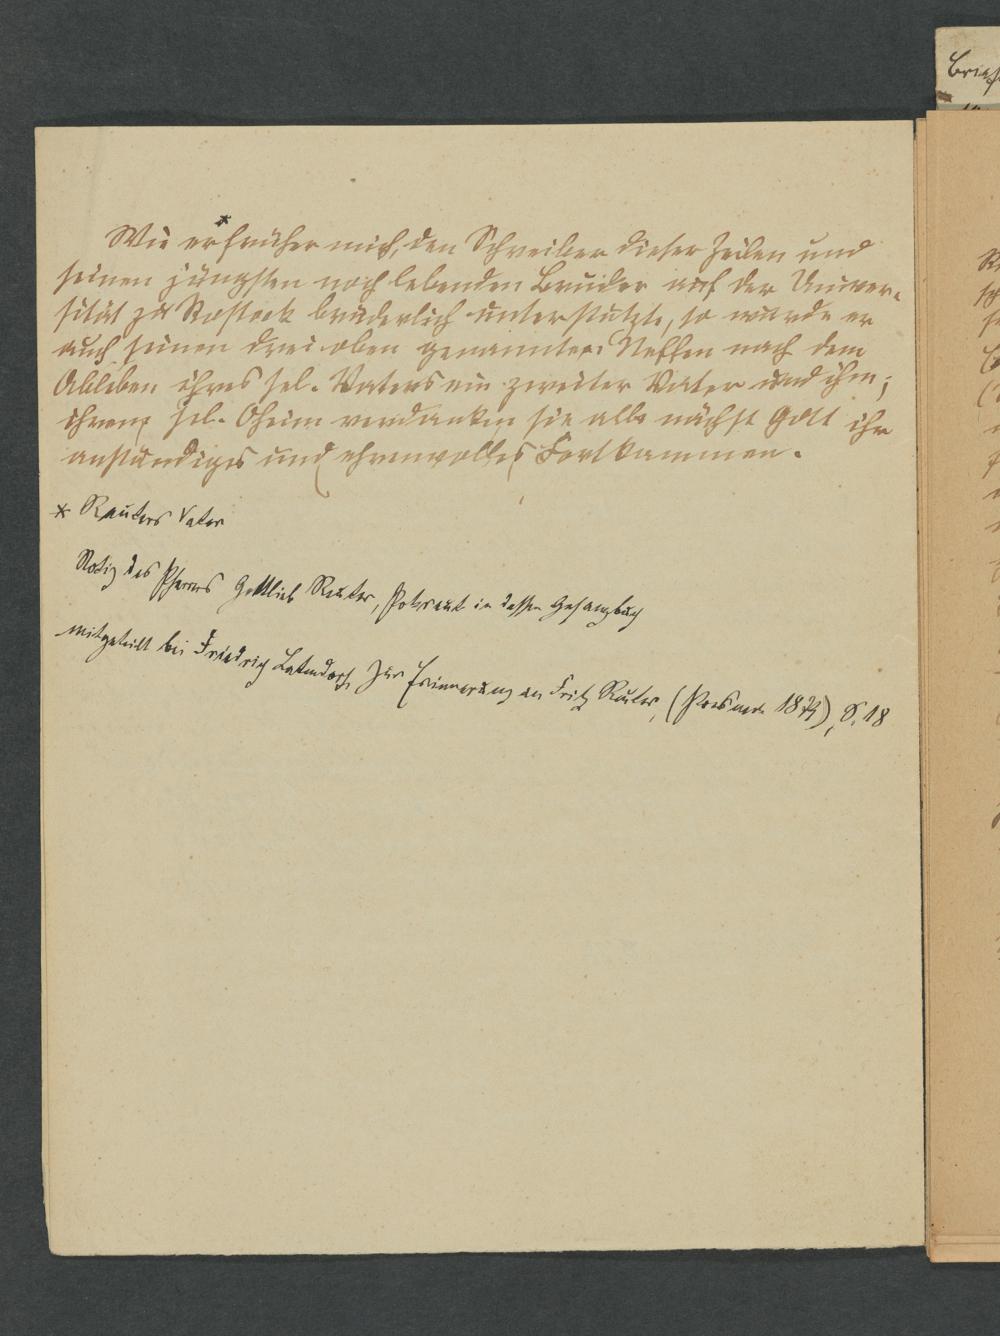 Wie er* früher mich, den Schreiber dieser Zeilen und
seinen jüngsten noch lebenden Bruder auf der Univer-
sität zu Rostock brüderlich unterstützte, so wurde er
auch seinen drei oben genannten Neffen nach dem
Ableben ihres sel. Vaters ein zweiter Vater und ihm,
ihrem sel. Oheim verdanken sie alle nächst Gott ihr
anständiges und ehrenvolles Fortkommen.
* Reuters Vater
Notiz des Pfarrers Gottlieb Reuter, in dessen Gesangbuch
mitgeteilt bei Friedrich Latendorf, Zur Erinnerung an Fritz Reuter, (Poesneck 1879), S. 18
Brief